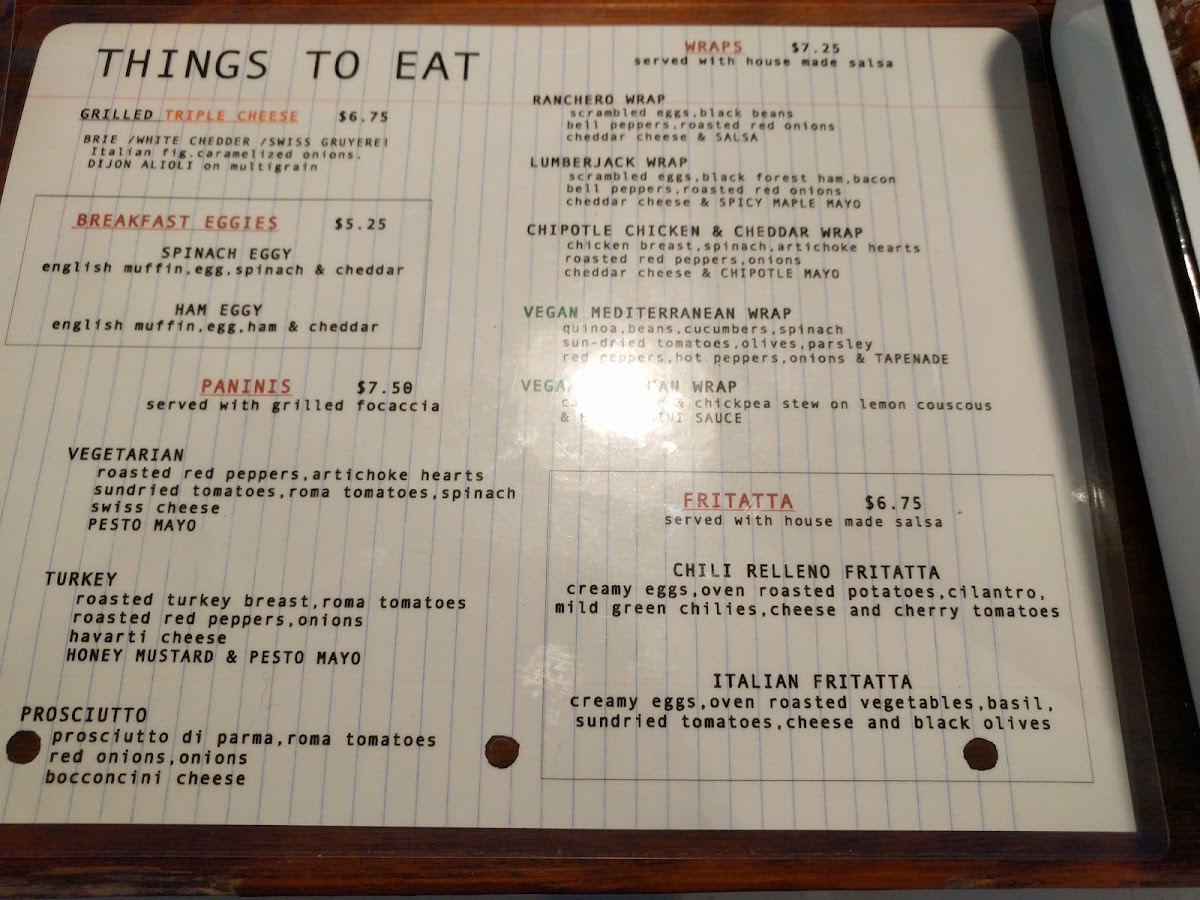 THINGS TO EAT
GRILLED TRIPLE CHEESE $6.75
BRIE /WHITE CHEDDER /SWISS GRUYERE!
Italian fig.caramelized onions.
DIJON ALIOLI on multigrain
BREAKFAST EGGIES $5.25
SPINACH EGGY
english muffin,egg,spinach & cheddar
HAM EGGY
english muffin,egg,ham & cheddar
PANINIS $7.50
served with grilled focaccia
VEGETARIAN
roasted red peppers,artichoke hearts
sundried tomatoes,roma tomatoes,spinach
swiss cheese
PESTO MAYO
TURKEY
roasted turkey breast,roma tomatoes
roasted red peppers,onions
havarti cheese
HONEY MUSTARD & PESTO MAYO
PROSCIUTTO
prosciutto di parma,roma tomatoes
red onions,onions
bocconcini cheese
WRAPS $7.25
served with house made salsa
RANCHERO WRAP
scrambled eggs,black beans
bell peppers,roasted red onions
cheddar cheese & SALSA
LUMBERJACK WRAP
scrambled eggs,black forest ham,bacon
bell peppers,roasted red onions
cheddar cheese & SPICY MAPLE MAYO
CHIPOTLE CHICKEN & CHEDDAR WRAP
chicken breast,spinach,artichoke hearts
roasted red peppers,onions
cheddar cheese & CHIPOTLE MAYO
VEGAN MEDITERRANEAN WRAP
quinoa,beans,cucumbers,spinach
sun-dried tomatoes,olives,parsley
red peppers,hot peppers,onions & TAPENADE
VEGAN WRAP
& chickpea stew on lemon couscous
& SAUCE
FRITATTA $6.75
served with house made salsa
CHILI RELLENO FRITATTA
creamy eggs,oven roasted potatoes,cilantro,
mild green chilies,cheese and cherry tomatoes
ITALIAN FRITATTA
creamy eggs,oven roasted vegetables,basil,
sundried tomatoes,cheese and black olives